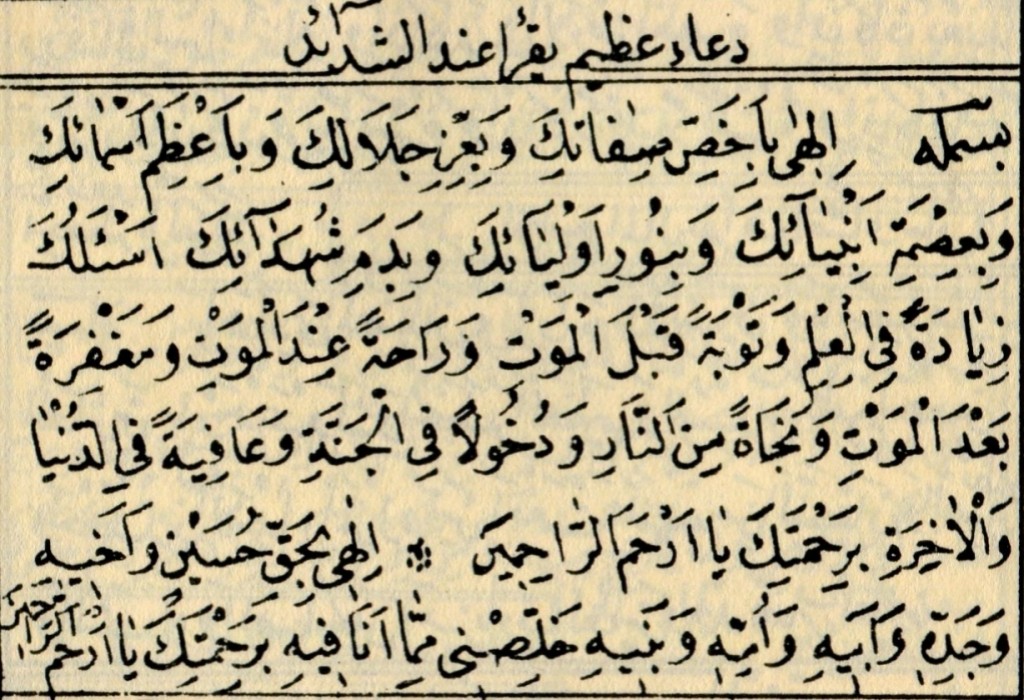 دعاء عظيم يقرأ عند الشدآئد
بسمله إِلٰهى بِاَخَصِّ صِفاتِكَ وَبِعِزِّ جَلَالِكَ وَبِاَعْظَمِ اَسْمائِكَ
وَبِعِصْمَةِ اَنْبِيٰآئِكَ وَبِنُورِ اَوْلِيٰائِكَ وَبِدَمِ شُهَدَآئِكَ اَسْئَلُكَ
زِيٰادَةً فِى الْعِلْمِ وَتَوْبَةً قَبْلَ الْمَوْتِ وَرَاحَةً عِنْدَ الْمَوْتِ وَمَغْفِرَةً
بَعْدَ الْمَوْتِ وَنَجَاةً مِنَ النَّارِ وَدُخُولاً فِى الْجَنَّةِ وَعَافِيَةً فِى الدُّنْيٰا
وَالْاٰخِرَةِ بِرَحْمَتِكَ يٰا اَرْحَمَ الرَّاحِمِينَ ❊ اِلٰهى بِحَقِّ حُسَيْنٍ وَاَخيهِ
وَجَدِّهِ وَاَبيهِ وَاُمِّهِ وَبَنيهِ خَلِّصْنى مِمّٰا اَنَا فيهِ بِرَحْمَتِكَ يٰا اَرْحَمَ الرّاحِمينَ